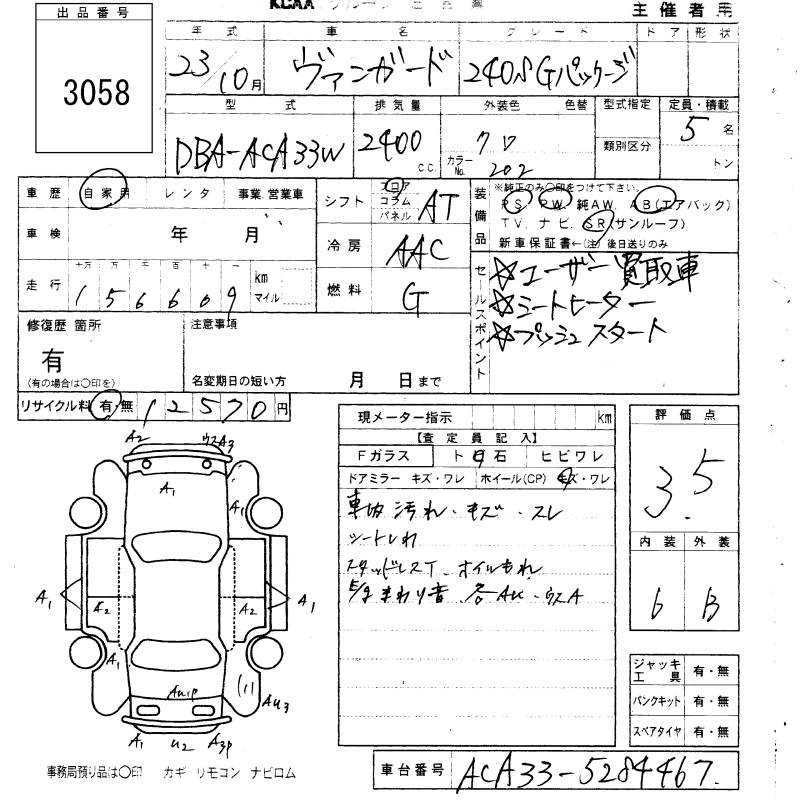 KCAA グループ
主催者用
出品番号
3058
年式 車名 グレード ドア形状
23/10月 ヴァンガード 240S Gパッケージ
型式 排気量 外装色 色替 型式指定 定員・積載
DBA-ACA33W 2400cc クロ カラーNo. 202 類別区分 5名 トン
車歴 自家用 レンタ 事業 営業車
車検 年 月
走行 十万 万 千 百 十 一 km マイル
156609
シフト フロア コラム パネル AT
冷房 AAC
燃料 G
装備品
※純正のみ〇印をつけて下さい。
PS PW 純AW. AB(エアバック)
TV. ナビ. SR(サンルーフ)
新車保証書←(注)後日送りのみ
セールスポイント
☆ユーザー買取車
☆シートヒーター
☆プッシュスタート
修復歴 箇所
有
(有の場合は〇印を)
注意事項
名変期日の短い方 月 日まで
リサイクル料 有・無 12570円
現メーター指示 km
【査定員記入】
Fガラス ト日石 ヒビワレ
ドアミラー キズ・ワレ ホイール(CP) キズ・ワレ
車内汚れ・キズ・スレ
シートしわ
スタッドレスT. オイルもれ
まわり音. 各AU・ウスA
評価点
3.5
内装 外装
6 B
ジャッキ工具 有・無
パンクキット 有・無
スペアタイヤ 有・無
A2 ウスA3
A1 A1
A1 A2 A2 A1
A1
AU1P AU3
A1 U2 A3P
事務局預り品は〇印 カギ リモコン ナビロム
車台番号 ACA33-5284467.